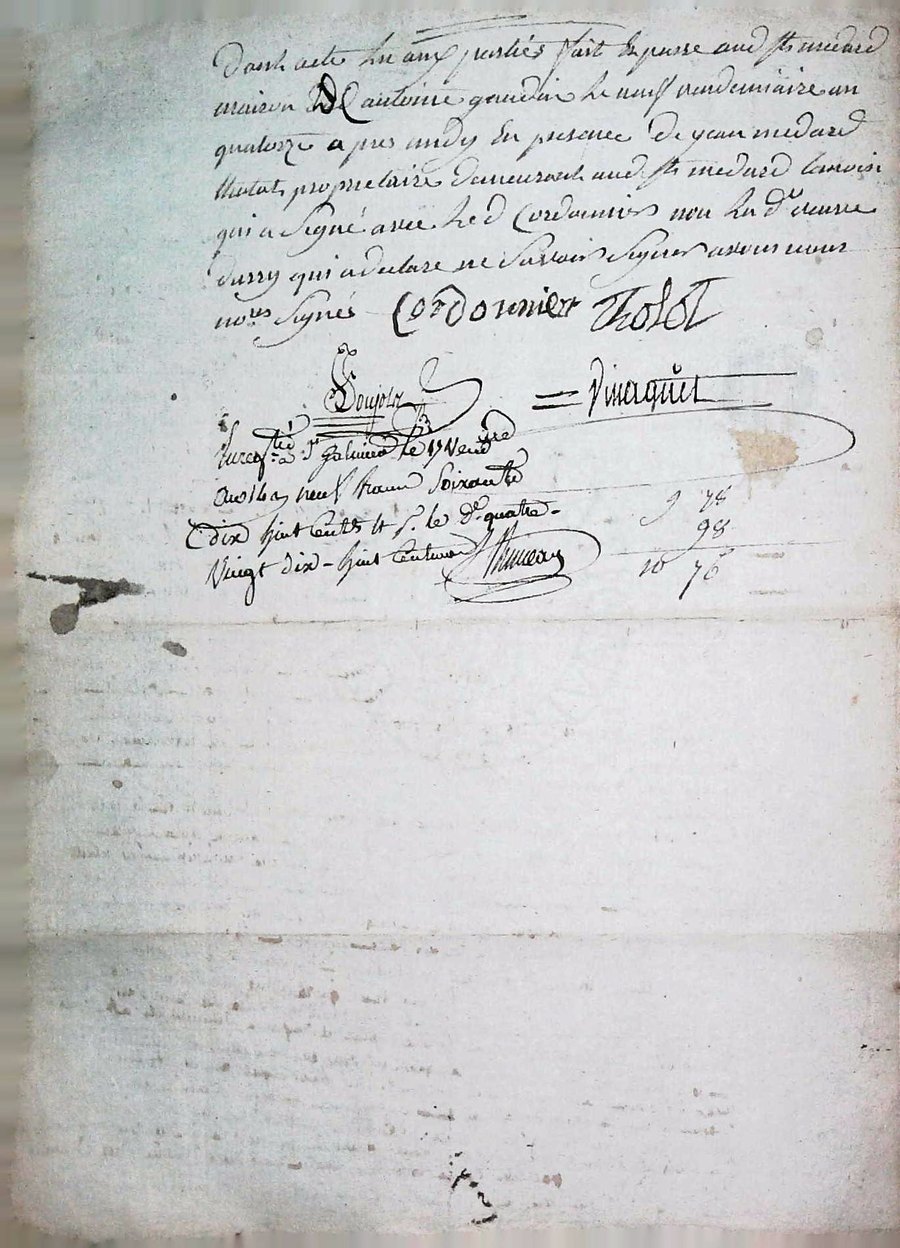 Dont acte lu aux parties fait & passé aud St medard
maison D antoine gaudin le neuf vendemiaire an
quatorze apres midy En presence De jean medard
tholot proprietaire demeurant aud St medard temoin
qui a Signé avec led Cordonnier non lad. veuve
qui a declare ne Savoir Signer avons nous
nores Signés Cordonnier Tholot
Vinaguet
Enregtré a St Galmier le 17 Vendre
an 14 neuf franc Soixante
Dix huit Cents et p. le De quatre-
Vingt dix-huit Centimes
9 78
98
10 76